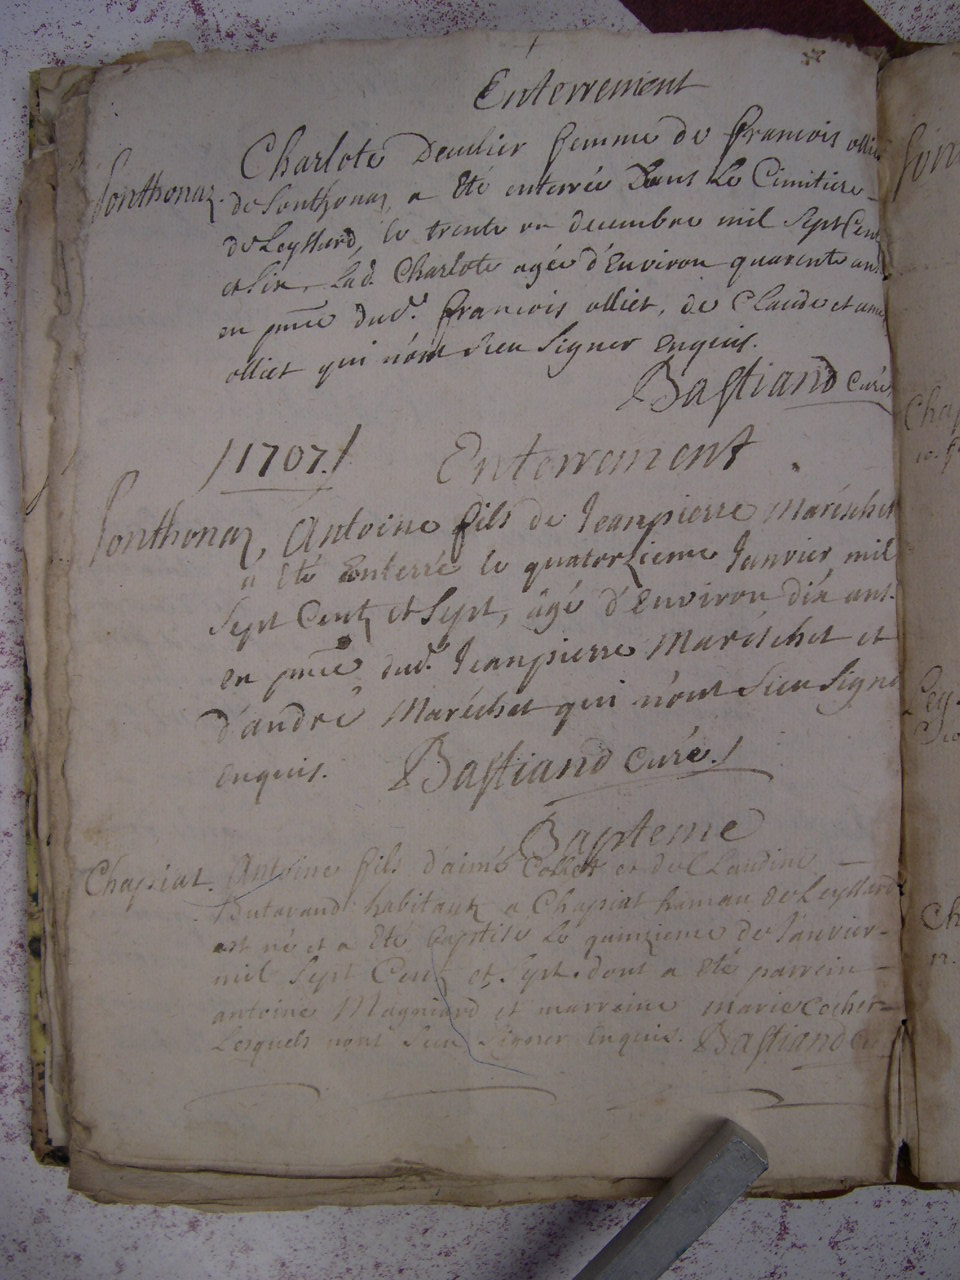 Enterrement
Sonthonaz Charlote Deculier femme de francois ollie
de Sonthonaz, a Eté enterrée Dans Le Cimitiere
de Leyssard, le trente un decembre mil Sept Cent
et Six. Lad. Charlote agée d'Environ quarente ans
en pnce dud. francois olliet, de Claude et
olliet qui n'ont Sceu Signer Enquis.
Bastiand Curé
/1707./ Enterrement
Sonthonaz, Antoine fils de Jeanpierre Maréchet
a Eté Enterré le quatorzieme Janvier mil
Sept Centz et Sept, agé d'Environ dix ans.
en pnce dud. Jeanpierre Maréschet et
d'andré Maréchet qui n'ont Sceu Signe
Enquis. Bastiand Curé./
Bapteme
Chapiat. Antoine fils d'aimé Collet et de Claudine
habitantz a Chapiat hameau de Leyssard
est né et a Eté baptisé Le quinzieme de Janvier
mil Sept Centz et Sept. dont a Eté parrein
antoine Magniard et marraine Marie Cocher
Lesquels n'ont Sceu Signer Enquis. Bastiand Cu